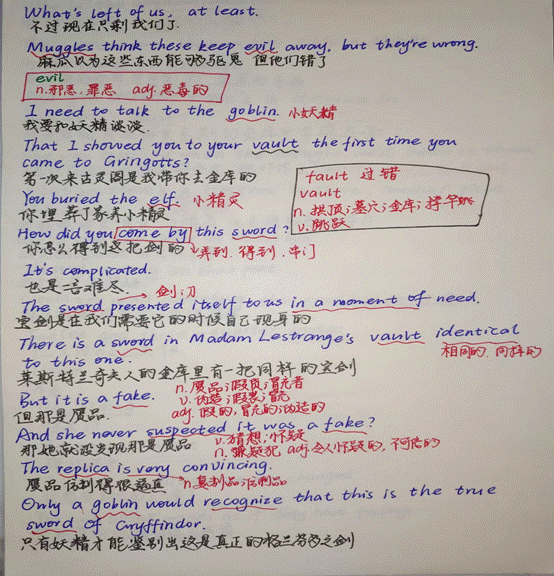 What's left of us, at least.
不过现在只剩我们了.
Muggles think these keep evil away, but they're wrong.
麻瓜以为这些东西能够驱鬼 但他们错了
evil
n.邪恶.罪恶 adj.恶毒的
I need to talk to the goblin. 小妖精
我要和妖精谈谈.
That I showed you to your vault the first time you
came to Gringotts?
第一次来古灵阁是我带你去金库的
fault 过错
vault
n. 拱顶;墓穴;金库;撑竿跳
v.跳跃
You buried the elf. 小精灵
你埋葬了家养小精灵
How did you come by this sword?
你怎么得到这把剑的 弄到.得到.串门
It's complicated.
也是一言难尽. 剑;刀
The sword presented itself to us in a moment of need.
宝剑是在我们需要它的时候自己现身的
There is a sword in Madam Lestrange's vault identical
to this one. 相同的.同样的
莱斯特兰奇夫人的金库里有一把同样的宝剑
But it is a fake. n.赝品;假货;冒充者
v.伪造;假装;冒充
但那是赝品. adj.假的,冒充的;伪造的
And she never suspected it was a fake?
那她就没发现那是赝品 v.猜想;怀疑
n.嫌疑犯 adj.令人怀疑的,不可信的
The replica is very convincing.
赝品仿制得很逼真 n.复制品;仿制品
Only a goblin would recognize that this is the true
sword of Gryffindor.
只有妖精才能鉴别出这是真正的格兰芬多之剑